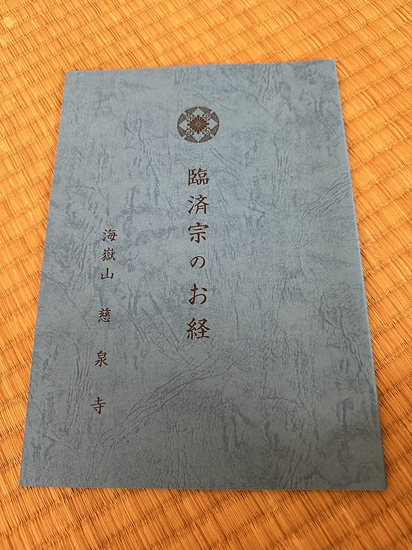 臨済宗のお経
海嶽山 慈泉寺